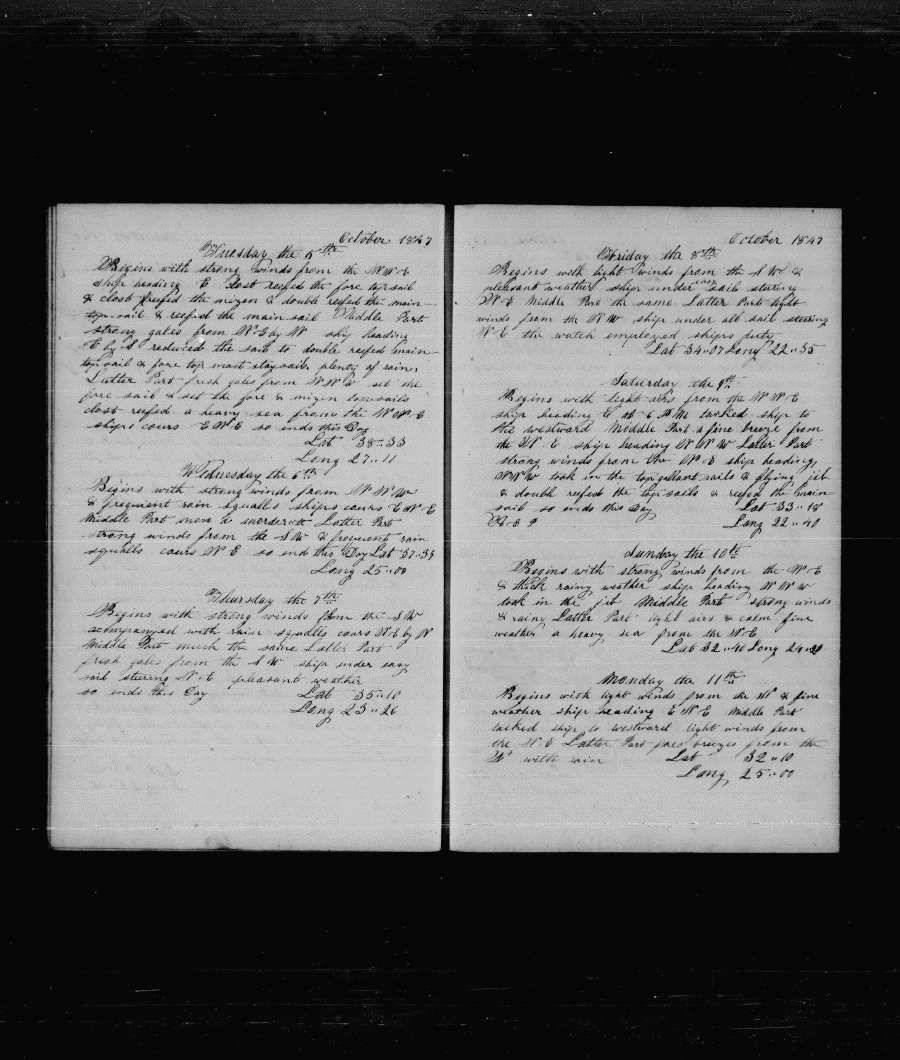 October 1847
Tuesday the 5th
Begins with strong winds from the NW E
ship heading E close reefed the fore top sail
& close reefed the mizen & double reefed the main
top sail & reefed the main sail Middle Part
strong gales from N E by N ship heading
E by S reduced the sail to double reefed main
top sail & fore top mast stay sail plenty of rain,
Latter Part fresh gales from NNW set the
fore sail & set the fore & mizen topsails
close reefed a heavy sea from the WNE
ships cours ENE so ends this Day
Lat 38..33
Long 27..11
Wednesday the 6th
Begins with strong winds from NNW
& frequent rain squalls ships cours ENE
Middle Part more moderate Latter Part
strong winds from the SW & frequent rain
squalls cours NE so end this Day Lat 37..33
Long 25..00
Thursday the 7th
Begins with strong winds from the SW
acompanyed with rain squalls cours NE by N
Middle Part much the same Latter Part
fresh gales from the SW ship under easy
sail stering N E pleasant weather
so ends this Day Lat 35..10
Long 23..26
October 1847
Friday the 8th
Begins with light winds from the SW &
pleasant weather ship under easy sail stering
NE Middle Part the same Latter Part light
winds from the NW ship under all sail stering
NE the watch employed ships duty
Lat 34..07 Long 22..35
Saturday the 9th
Begins with light airs from the NNE
ship heading E at 6 PM tacked ship to
the westward Middle Part a fine breeze from
the NE ship heading NNW Latter Part
strong winds from the NE ship heading
NNW took in the top gallant sails & flying jib
& double reefed the top sails & reefed the main
sail so ends this Day Lat 33..18
Long 22..40
Sunday the 10th
Begins with strong winds from the NE
& thick rainy weather ship heading NNW
took in the jib Middle Part strong winds
& rainy Latter Part light airs & calm fine
weather a heavy sea from the NE
Lat 32..40 Long 24..20
Monday the 11th
Begins with light winds from the N & fine
weather ship heading ENE Middle Part
tacked ship to westward light winds from
the NE Latter Part breezes from the
N with rain Lat 32..10
Long 25..00